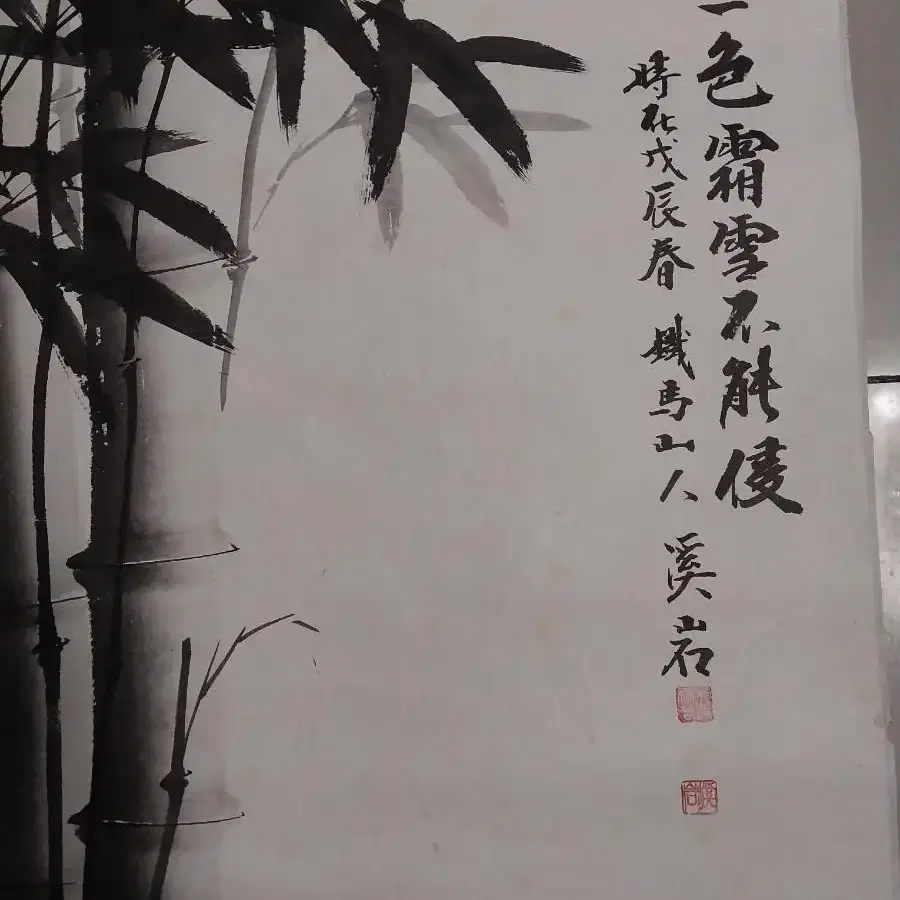 一色霜雪不能侵
時在戊辰春 鐵馬山人 溪岩